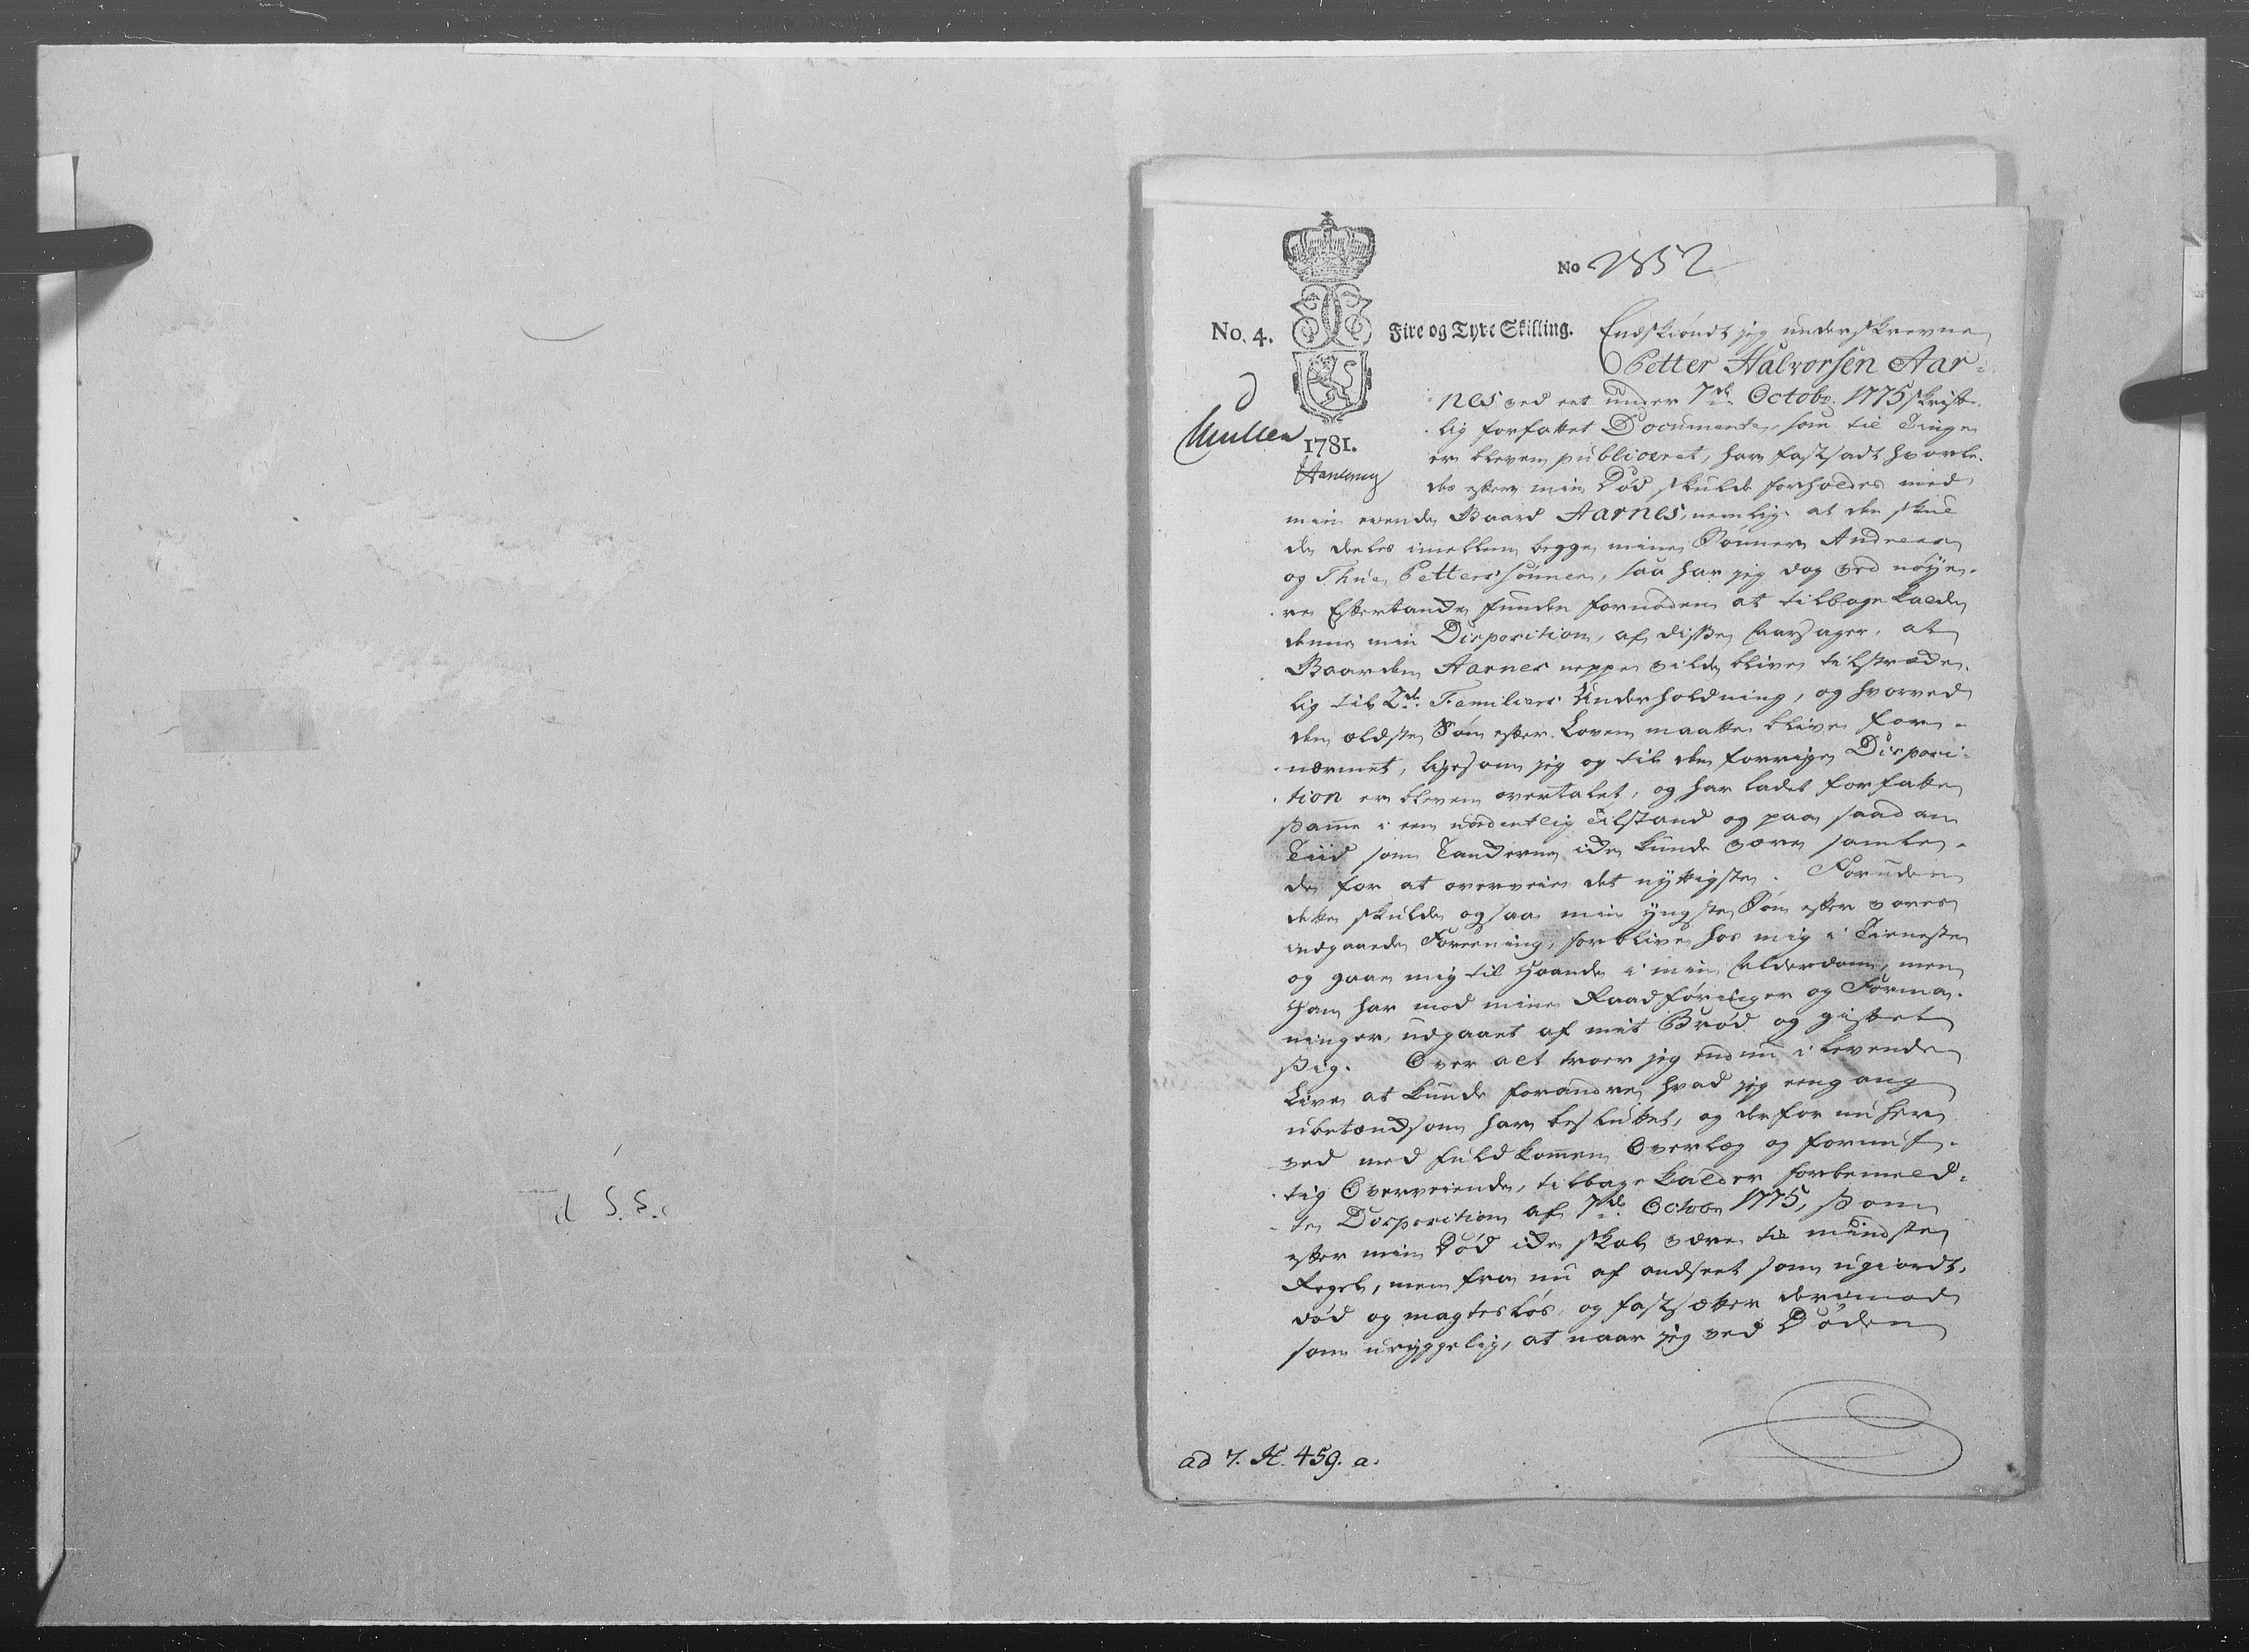 Til S. S.
No 2852
No. 4. Fire og Tyve Skilling. Endskiøndt jeg underskrevne
Petter Halvorsen Aar-
nes ved eet under 7de Octobr. 1775 skrift-
lig forfattet Documente, som til Tinge
er bleven publiceret, har fastsadt hvorle-
1781.
des efter min Død skulde forholdes med
min eiende Gaard Aarnes, nemlig: at den skul
de deeles imellem begge mine Sønner Andreas
og Thue Petterssønner, saa har jeg dog ved nøye-
re Eftertanke funden fornøden at tilbagekalde
denne min Disposition, af disse Aarsager, at
Gaarden Aarnes neppe vilde blive tilstræke-
lig til 2de Familiers Underholdning, og hvorved
den ældste Søn efter Loven maatte blive for-
nærmet, ligesom jeg og til den forrige Disposi-
tion er bleven overtalet, og har ladet forfatte
samme i een uordentlig Tilstand og paa saadan
Tiid som Tankerne ikke kunde være samle-
de for at overveie det nyttigste. Foruden
dette skulde ogsaa min yngste Søn efter vores
indgaaede Foreening, forblive hos mig i Tieneste
og gaae mig til Haande i min Alderdom, men
Han har mod mine Raadføringer og Forma-
ninger, udgaaet af mit Brød og giftet
sig. Over alt troer jeg endnu i levende
Live at kunde forandre, hvad jeg eengang
ubetænksom har besluttet, og derfor nu her-
ved med fuldkommen Overlæg og fornuf-
tig Overveiende, tilbagekalder forbemeld-
te Disposition af 7de Octobr 1775, som
efter min Død ikke skal være til mindste
Regel, men fra nu af andseet som ugiordt,
død og magtesløs, og fastsætter derimod
som uryggelig, at naar jeg ved Døden
ad 7. H. 459. a.